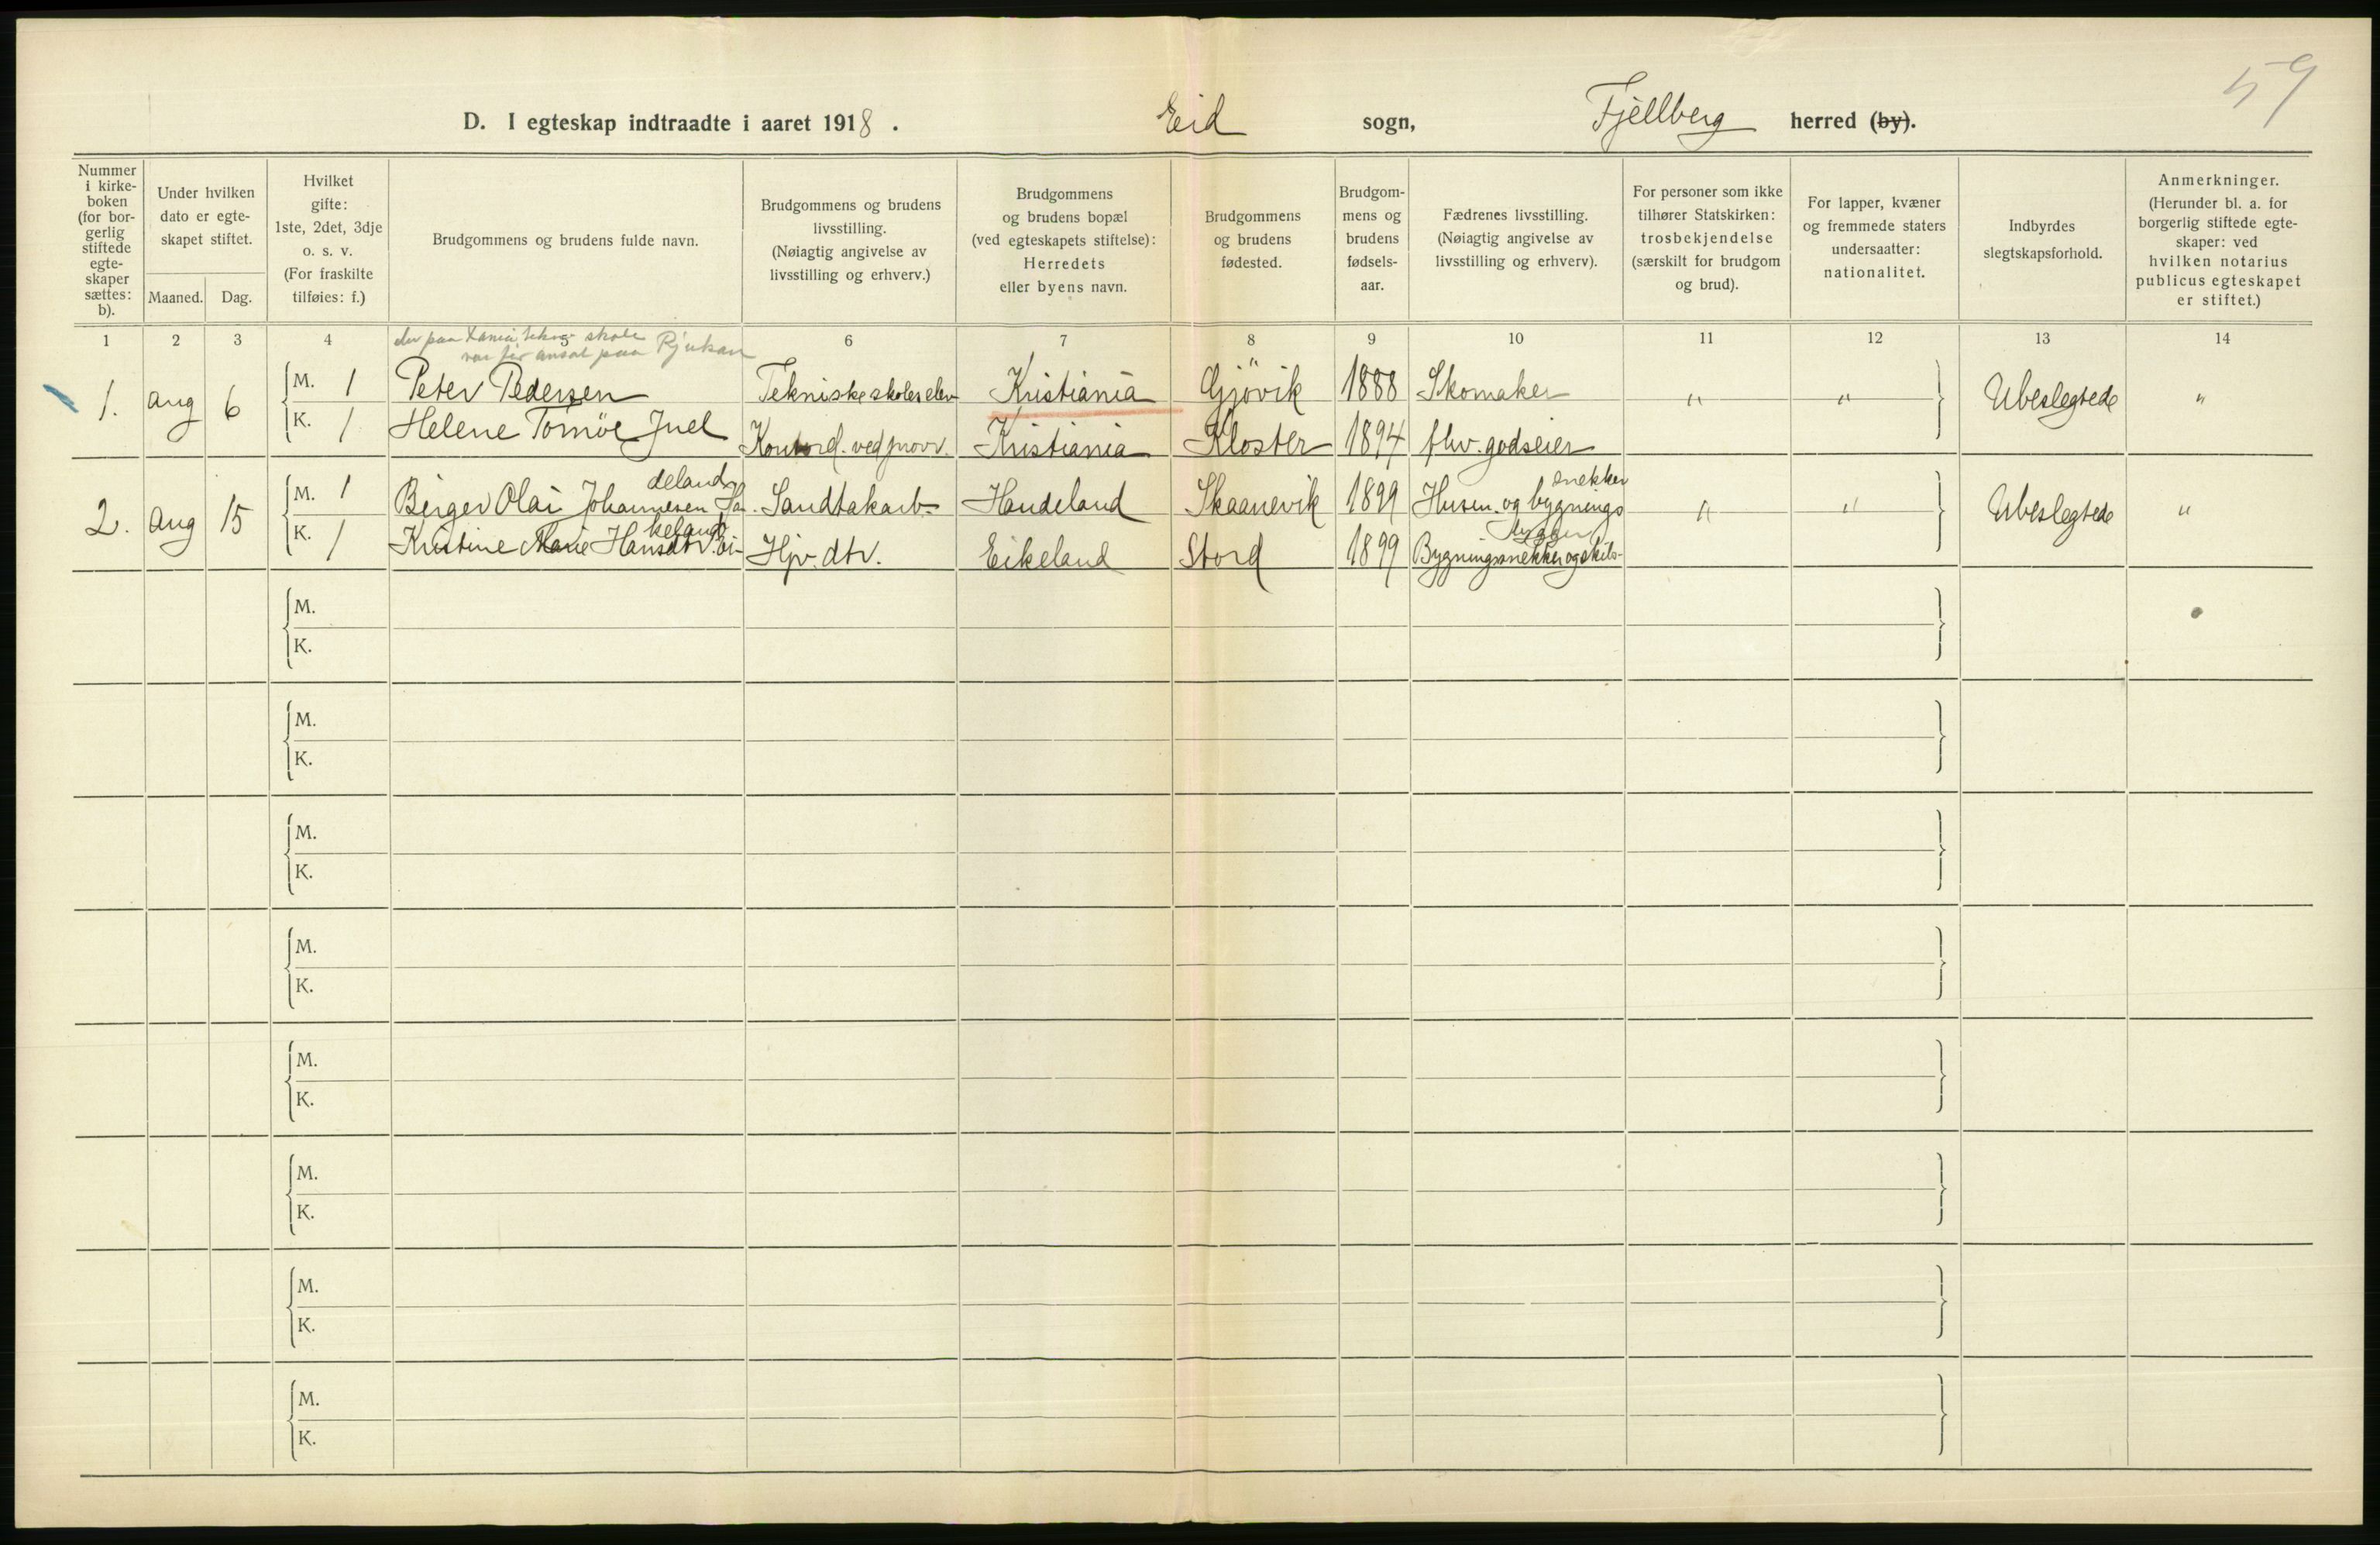 59
D. I egteskap indtraadte i aaret 1918. Eid sogn, Fjellberg herred (by).
Nummer i kirke-boken (for bor-gerlig stiftede egte-skaper sættes: b).
Under hvilken dato er egte-skapet stiftet.
Maaned. Dag.
Hvilket gifte: 1ste, 2det, 3dje o. s. v. (For fraskilte tilføies: f.)
Brudgommens og brudens fulde navn.
Brudgommens og brudens livsstilling. (Nøiagtig angivelse av livsstilling og erhverv.)
Brudgommens og brudens bopæl (ved egteskapets stiftelse): Herredets eller byens navn.
Brudgommens og brudens fødested.
Brudgom-mens og brudens fødsels-aar.
Fædrenes livsstilling. (Nøiagtig angivelse av livsstilling og erhverv).
For personer som ikke tilhører Statskirken: trosbekjendelse (særskilt for brudgom og brud).
For lapper, kvæner og fremmede staters undersaatter: nationalitet.
Indbyrdes slegtskapsforhold.
Anmerkninger. (Herunder bl. a. for borgerlig stiftede egte-skaper: ved hvilken notarius publicus egteskapet er stiftet.)
1 2 3 4 5 6 7 8 9 10 11 12 13 14
elev paa Xania tekn. skole
var før ansat paa Rjukan
1. Aug 6 M. 1 Peter Pedersen Tekniske skoles elev Kristiania Gjövik 1888 Skomaker " " Ubeslegtede "
K. 1 Helene Tomöe Juel Kontord. ved prov. Kristiania Kloster 1894 fhv. godseier
deland snekker
2. Aug 15 M. 1 Birger Olai Johannesen Ha- Sandtakarb. Haudeland Skaanevik 1899 Husm. og bygnings " " Ubeslegtede "
keland bygger
K. 1 Kristine Marie Hansdtr. Ei- Hjv. dtr. Eikeland Stord 1899 Bygningssnekker og skibs-
M.
K.
M.
K.
M.
K.
M.
K.
M.
K.
M.
K.
M.
K.
M.
K.